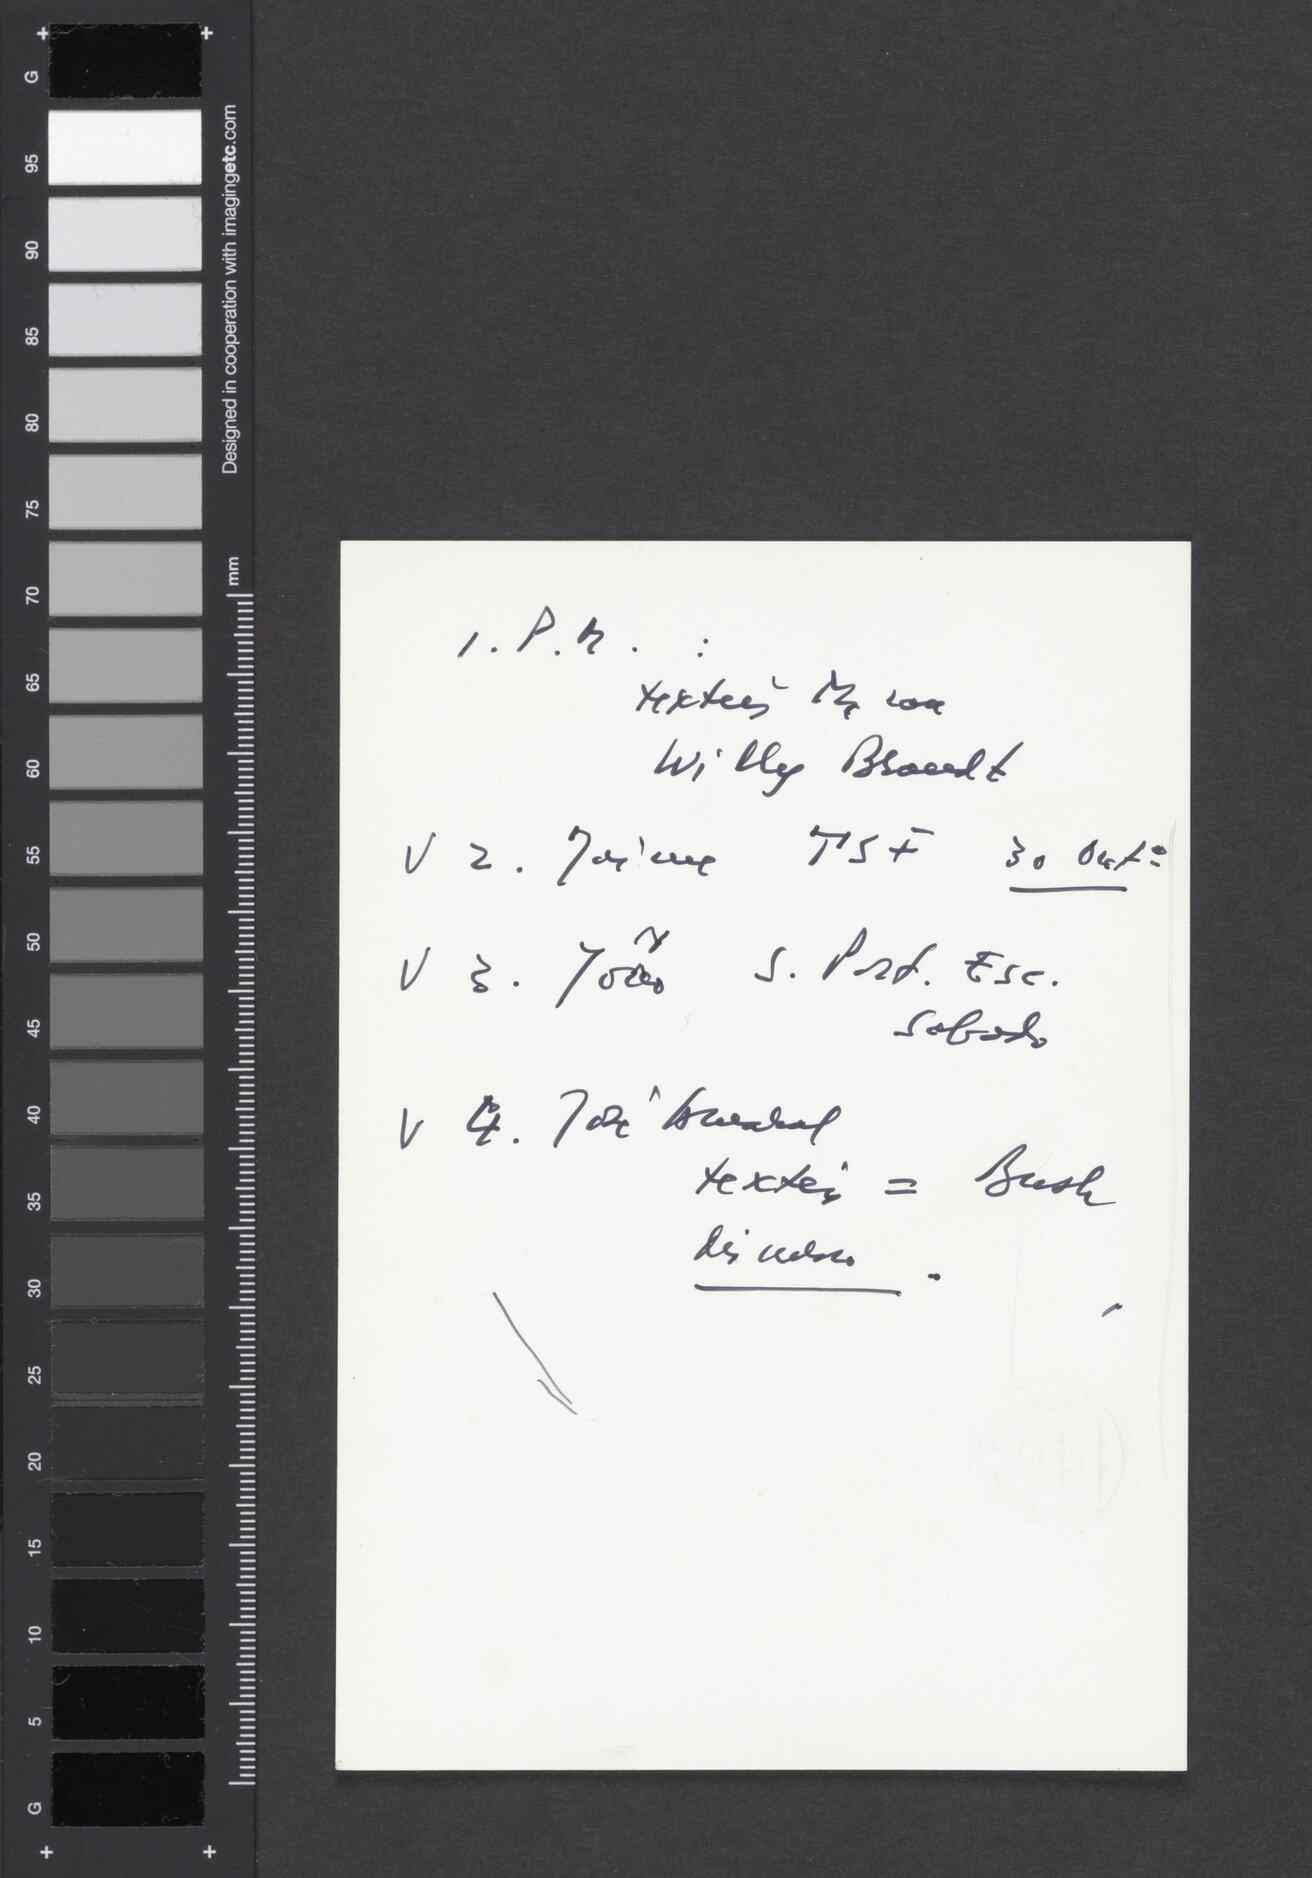 G
95
90
85
80
75
70
65
60
55
50
45
40
35
30
25
20
15
10
5
G
Designed in cooperation with imagingetc.com
mm
1. P.R. :
Willy Brandt
V 2. Jaime TSF 30 Outº
V 3. João S. Port. Esc.
Sabado
V 4. José
= Bush
discurso.